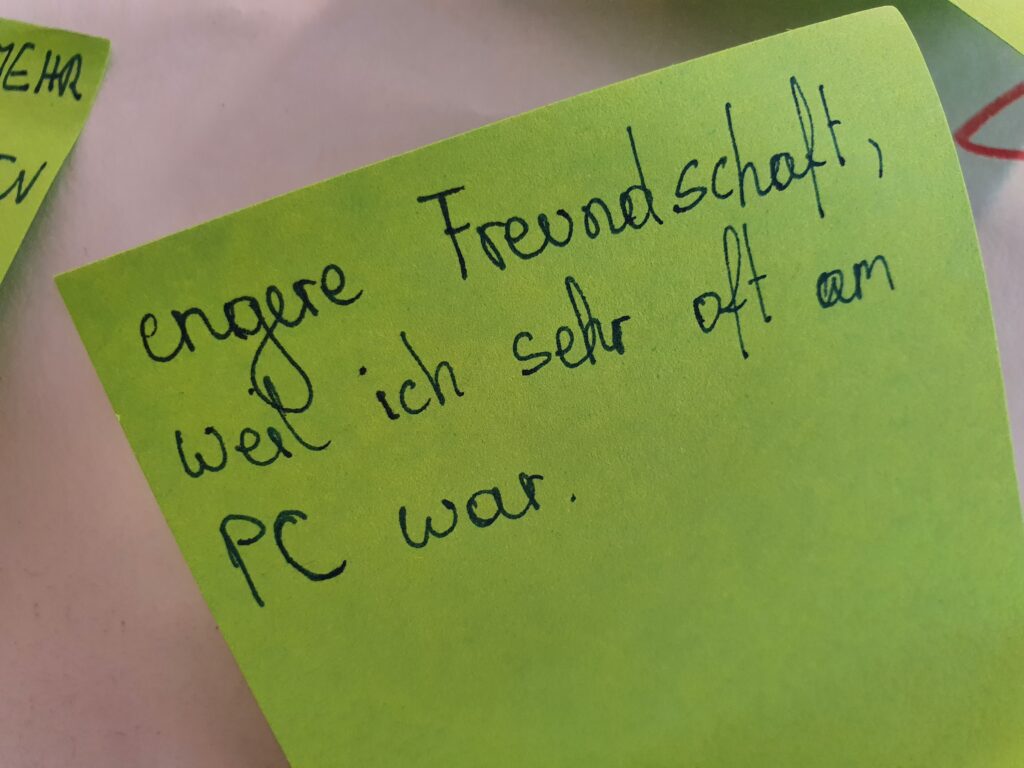 MEHR
engere Freundschaft,
weil ich sehr oft am
PC war.